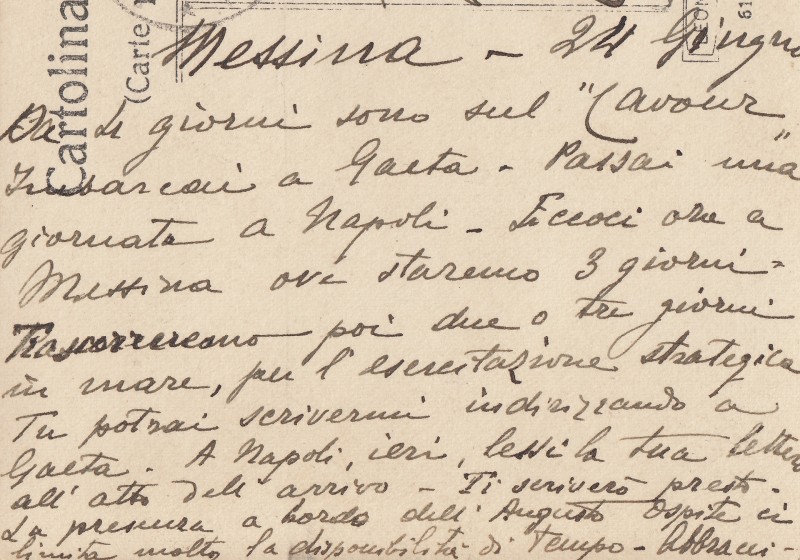 Cartolina
(Carte
61
Messina - 24 Giugno
Da 4 giorni sono sul "Cavour"
Imbarcai a Gaeta - Passai una
giornata a Napoli - Eccoci ora a
Messina ove staremo 3 giorni -
Trascorreremo poi due o tre giorni
in mare, per l'esercitazione strategica
Tu potrai scrivermi indirizzando a
Gaeta. A Napoli, ieri, lessi la tua lettera
all'atto dell'arrivo - Ti scriverò presto -
La presenza a bordo dell'Augusto Ospite ci
limita molto la disponibilità di tempo - Abbracci -